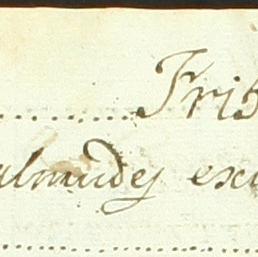 Fris
almudes exi